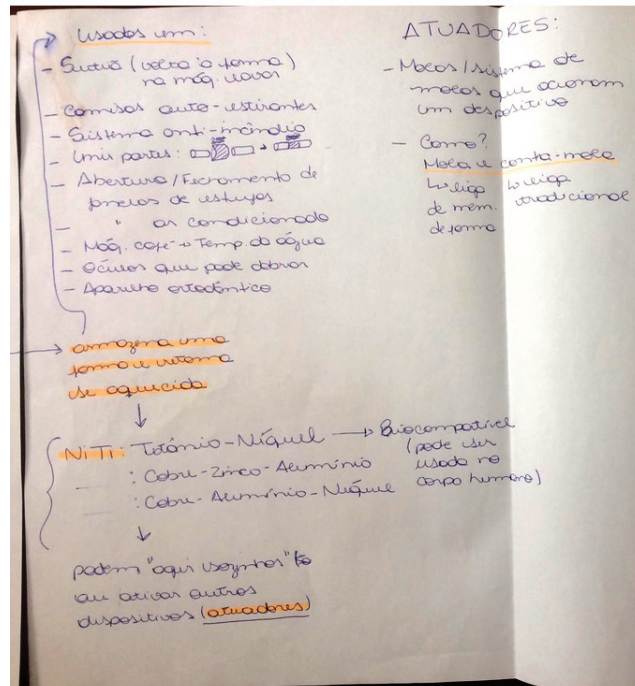 Usados em:
- Sutiã (volta à forma)
na máq. lavar
- Camisas auto-estirantes
- Sistema anti-incêndio
- Unir partes:
- Abertura/Fechamento de
janelas de estufas
- " ar condicionado
- Máq. café → Temp. da água
- Óculos que pode dobrar
- Aparelho ortodôntico
armazena uma
forma e retorna
se aquecida
NiTi: Titânio-Níquel → Biocompatível
(pode ser
usado no
corpo humano)
: Cobre-Zinco-Alumínio
: Cobre-Alumínio-Níquel
podem "agir sozinhos"
ou ativar outros
dispositivos (atuadores)
ATUADORES:
- Molas/sistema de
molas que acionam
um dispositivo
- Como?
Mola e contra-mola
↳ liga ↳ liga
de mem. tradicional
de forma